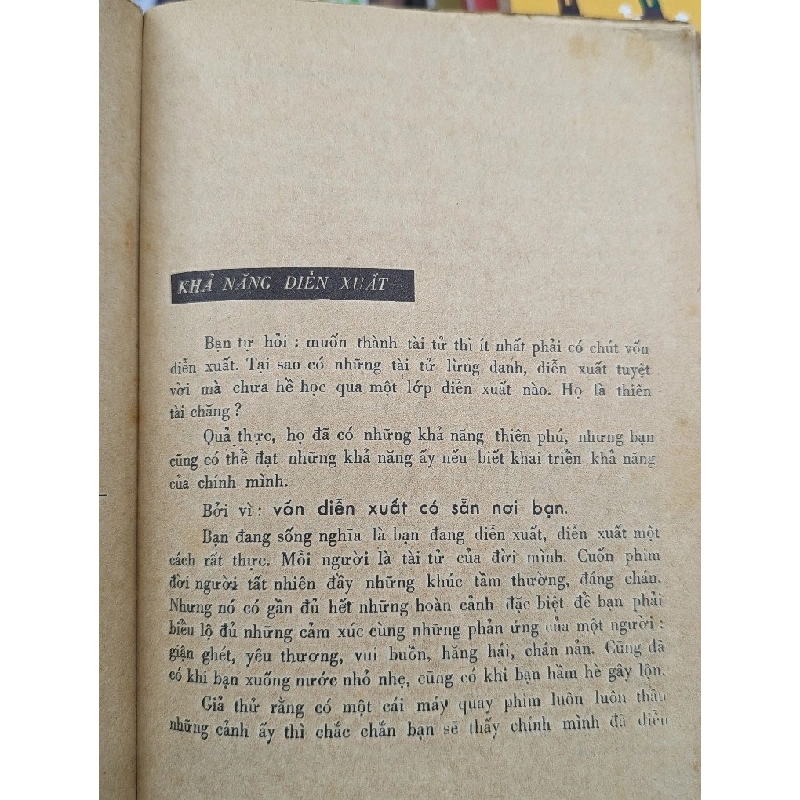 KHẢ NĂNG DIỄN XUẤT
Bạn tự hỏi : muốn thành tài tử thì ít nhất phải có chút vốn
diễn xuất. Tại sao có những tài tử lừng danh, diễn xuất tuyệt
vời mà chưa hề học qua một lớp diễn xuất nào. Họ là thiên
tài chăng ?
Quả thực, họ đã có những khả năng thiên phú, nhưng bạn
cũng có thể đạt những khả năng ấy nếu biết khai triển khả năng
của chính mình.
Bởi vì : vốn diễn xuất có sẵn nơi bạn.
Bạn đang sống nghĩa là bạn đang diễn xuất, diễn xuất một
cách rất thực. Mỗi người là tài tử của đời mình. Cuốn phim
đời người tất nhiên đầy những khúc tầm thường, đáng chán.
Nhưng nó có gần đủ hết những hoàn cảnh đặc biệt để bạn phải
biểu lộ đủ những cảm xúc cùng những phản ứng của một người :
giận ghét, yêu thương, vui buồn, hăng hái, chán nản. Cũng đã
có khi bạn xuống nước nhỏ nhẹ, cũng có khi bạn hầm hè gây lộn.
Giả thử rằng có một cái máy quay phim luôn luôn thâu
những cảnh ấy thì chắc chắn bạn sẽ thấy chính mình đã diễn